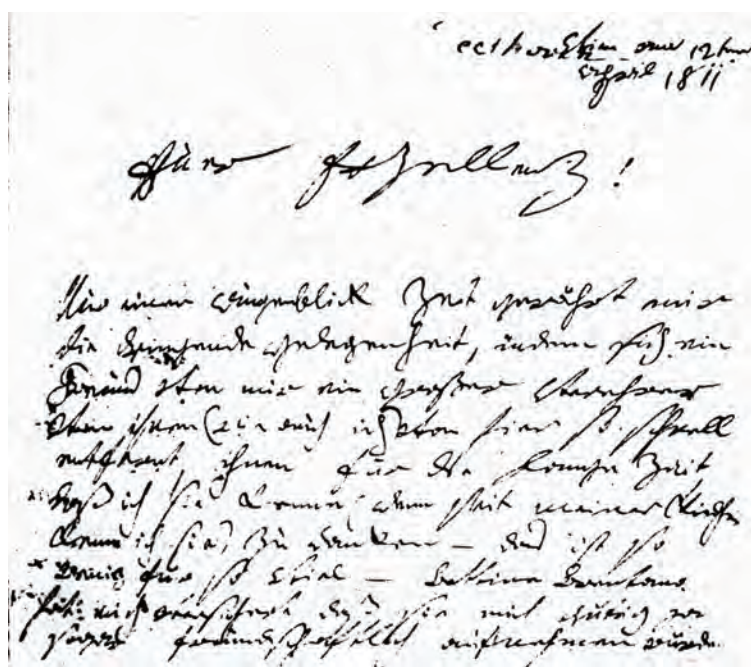 Wien am 12ten
april 1811
Euer Exzellenz!
Nur einen augenblick Zeit gewährt mir
die dringende gelegenheit, indem sich ein
Freund von mir ein großer Verehrer
von ihnen (wie auch ich) von hier so schnell
entfernt, ihnen für die lange Zeit
daß ich sie kenne (denn seit meiner Kindheit
kenne ich sie) zu danken – das ist so
wenig für so viel – Bettine Brentano
hat mich versichert daß sie mich gütig ja
sogar freundschaftlich aufnehmen würden